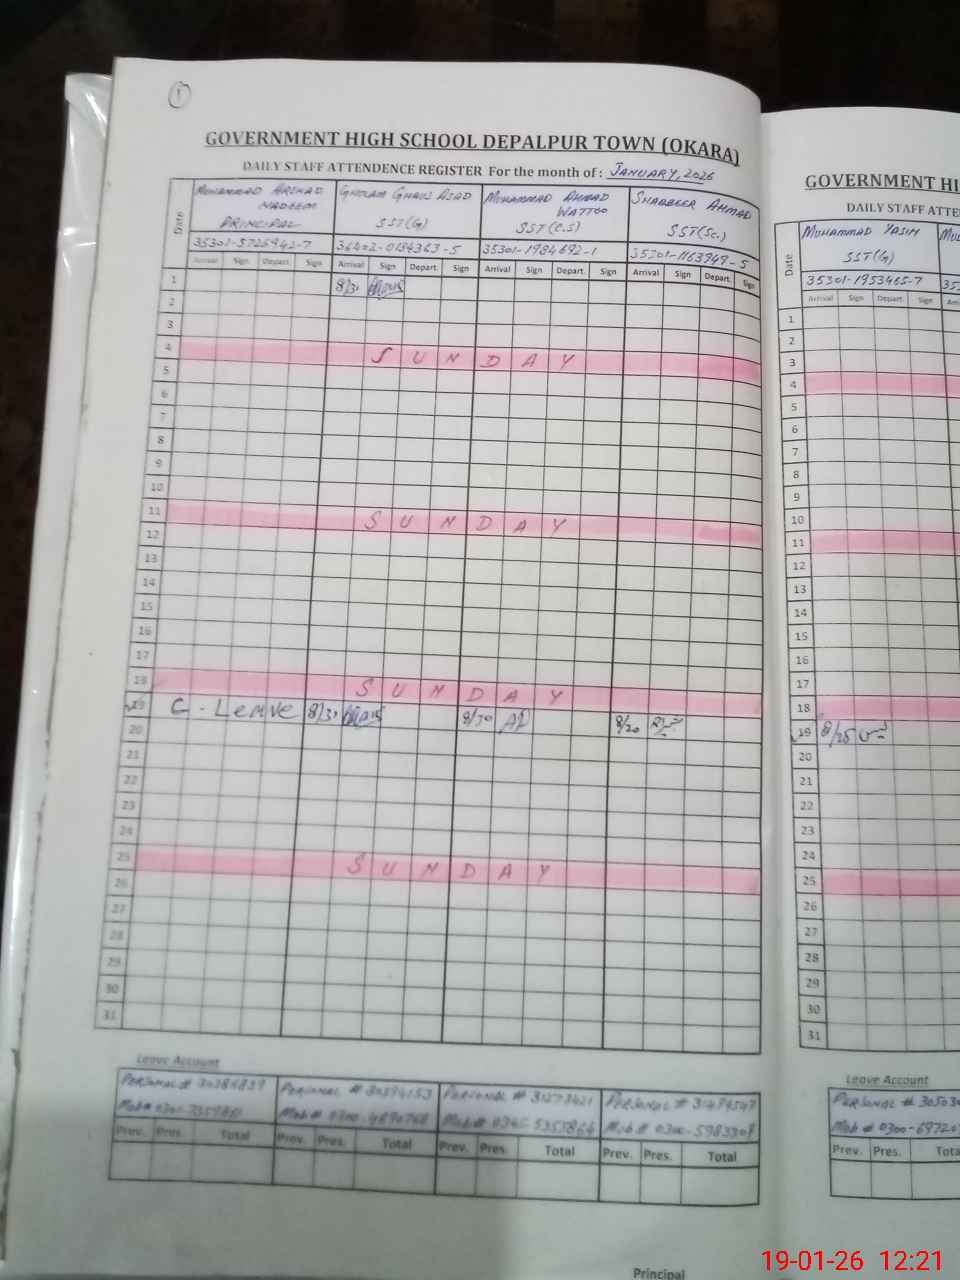 1
GOVERNMENT HIGH SCHOOL DEPALPUR TOWN (OKARA)
DAILY STAFF ATTENDENCE REGISTER For the month of: JANUARY, 2026
Date
MUHAMMAD ARSHAD NADEEM
PRINCIPAL
35301-5726942-7
GHULAM GHAUS ASAD
SST(G)
36402-0134363-5
MUHAMMAD AHMAD WATTOO
SST(C.S)
35301-1984692-1
SHABBEER AHMAD
SST(Sc.)
35301-1163947-5
Arrival Sign Depart. Sign Arrival Sign Depart. Sign Arrival Sign Depart. Sign Arrival Sign Depart. Sign
1 8/31
2
3
4 SUNDAY
5
6
7
8
9
10
11 SUNDAY
12
13
14
15
16
17
18 SUNDAY
19 C-Leave 8/31 8/30 8/20
20
21
22
23
24
25 SUNDAY
26
27
28
29
30
31
Leave Account
PERSONAL #
Mob #
PERSONAL # 30394153
Mob # 0300-
PERSONAL #
Mob #
PERSONAL # 31494547
Mob # 0300-5983309
Prev. Pres. Total Prev. Pres. Total Prev. Pres. Total Prev. Pres. Total
Principal
GOVERNMENT HI
DAILY STAFF ATTE
Date
MUHAMMAD YASIN
SST(G)
35301-1953465-7
MU
35
Arrival Sign Depart Sign
1
2
3
4
5
6
7
8
9
10
11
12
13
14
15
16
17
18
19 8/25
20
21
22
23
24
25
26
27
28
29
30
31
Leave Account
PERSONAL # 3050
Mob # 0300-6972
Prev. Pres. Tota
19-01-26 12:21